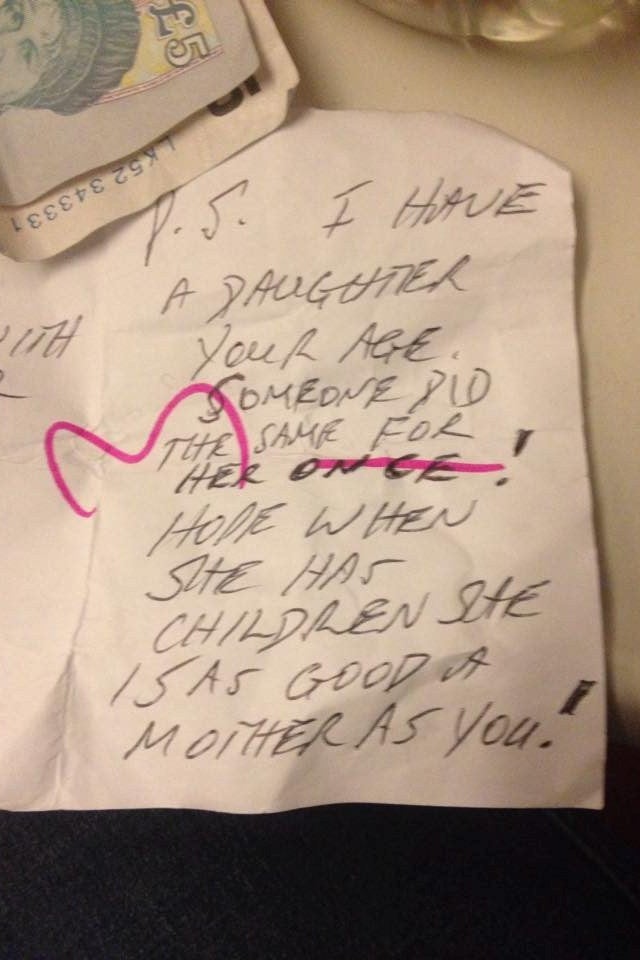 £5
5
LK52 343331
P.S. I HAVE
A DAUGHTER
YOUR AGE.
SOMEONE DID
THE SAME FOR
HER ONCE!
HOPE WHEN
SHE HAS
CHILDREN SHE
IS AS GOOD A
MOTHER AS YOU.!